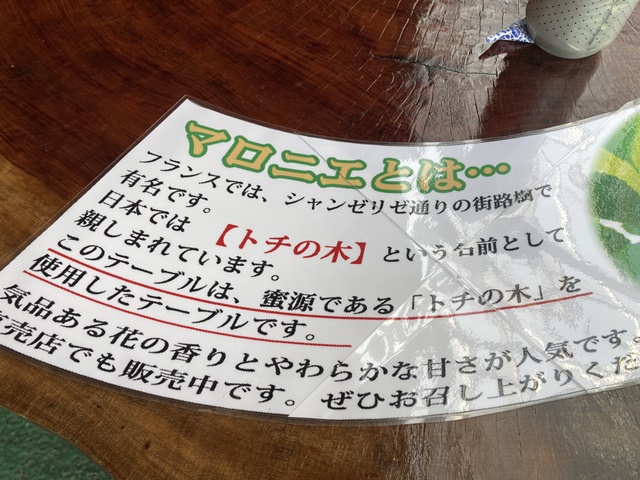 マロニエとは…
フランスでは、シャンゼリゼ通りの街路樹で
有名です。
日本では【トチの木】という名前として
親しまれています。
このテーブルは、蜜源である「トチの木」を
使用したテーブルです。
気品ある花の香りとやわらかな甘さが人気です。
売店でも販売中です。ぜひお召し上がりくだ